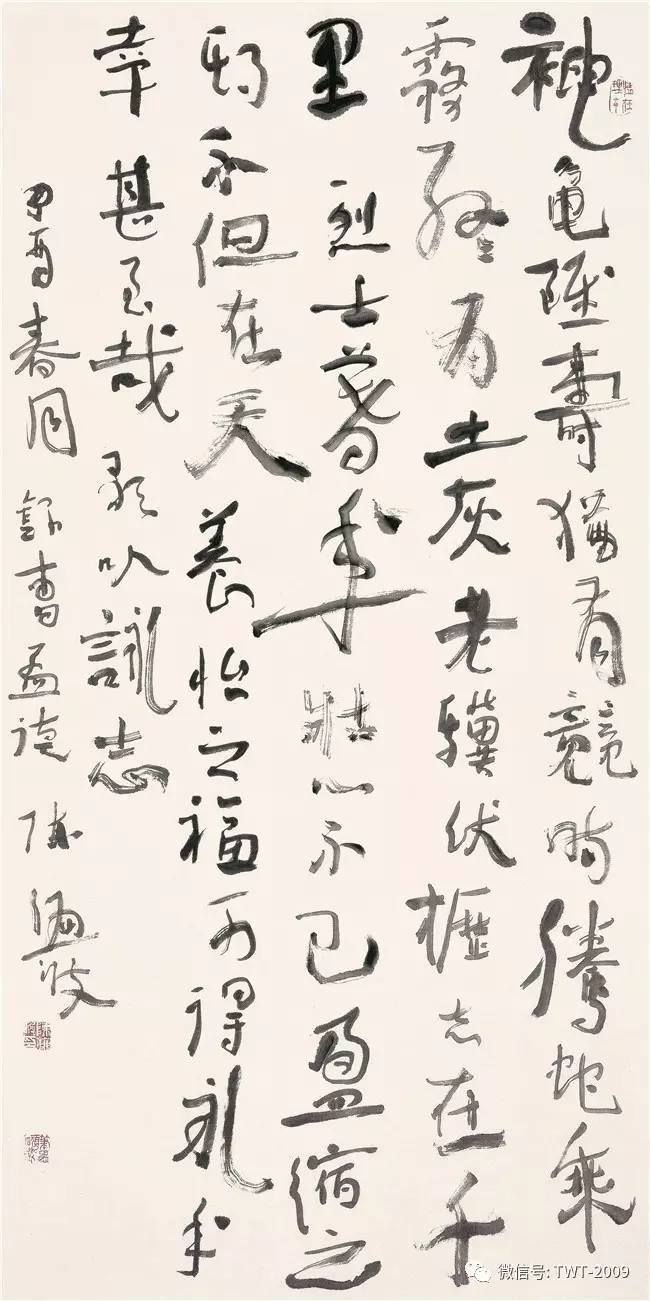 神龜雖壽猶有竟時騰蛇乘
霧終為土灰老驥伏櫪志在千
里烈士暮年壯心不已盈縮之
期不但在天養怡之福可得永年
幸甚至哉歌以詠志
酉春月錄書孟德
微信号: TWT-2009